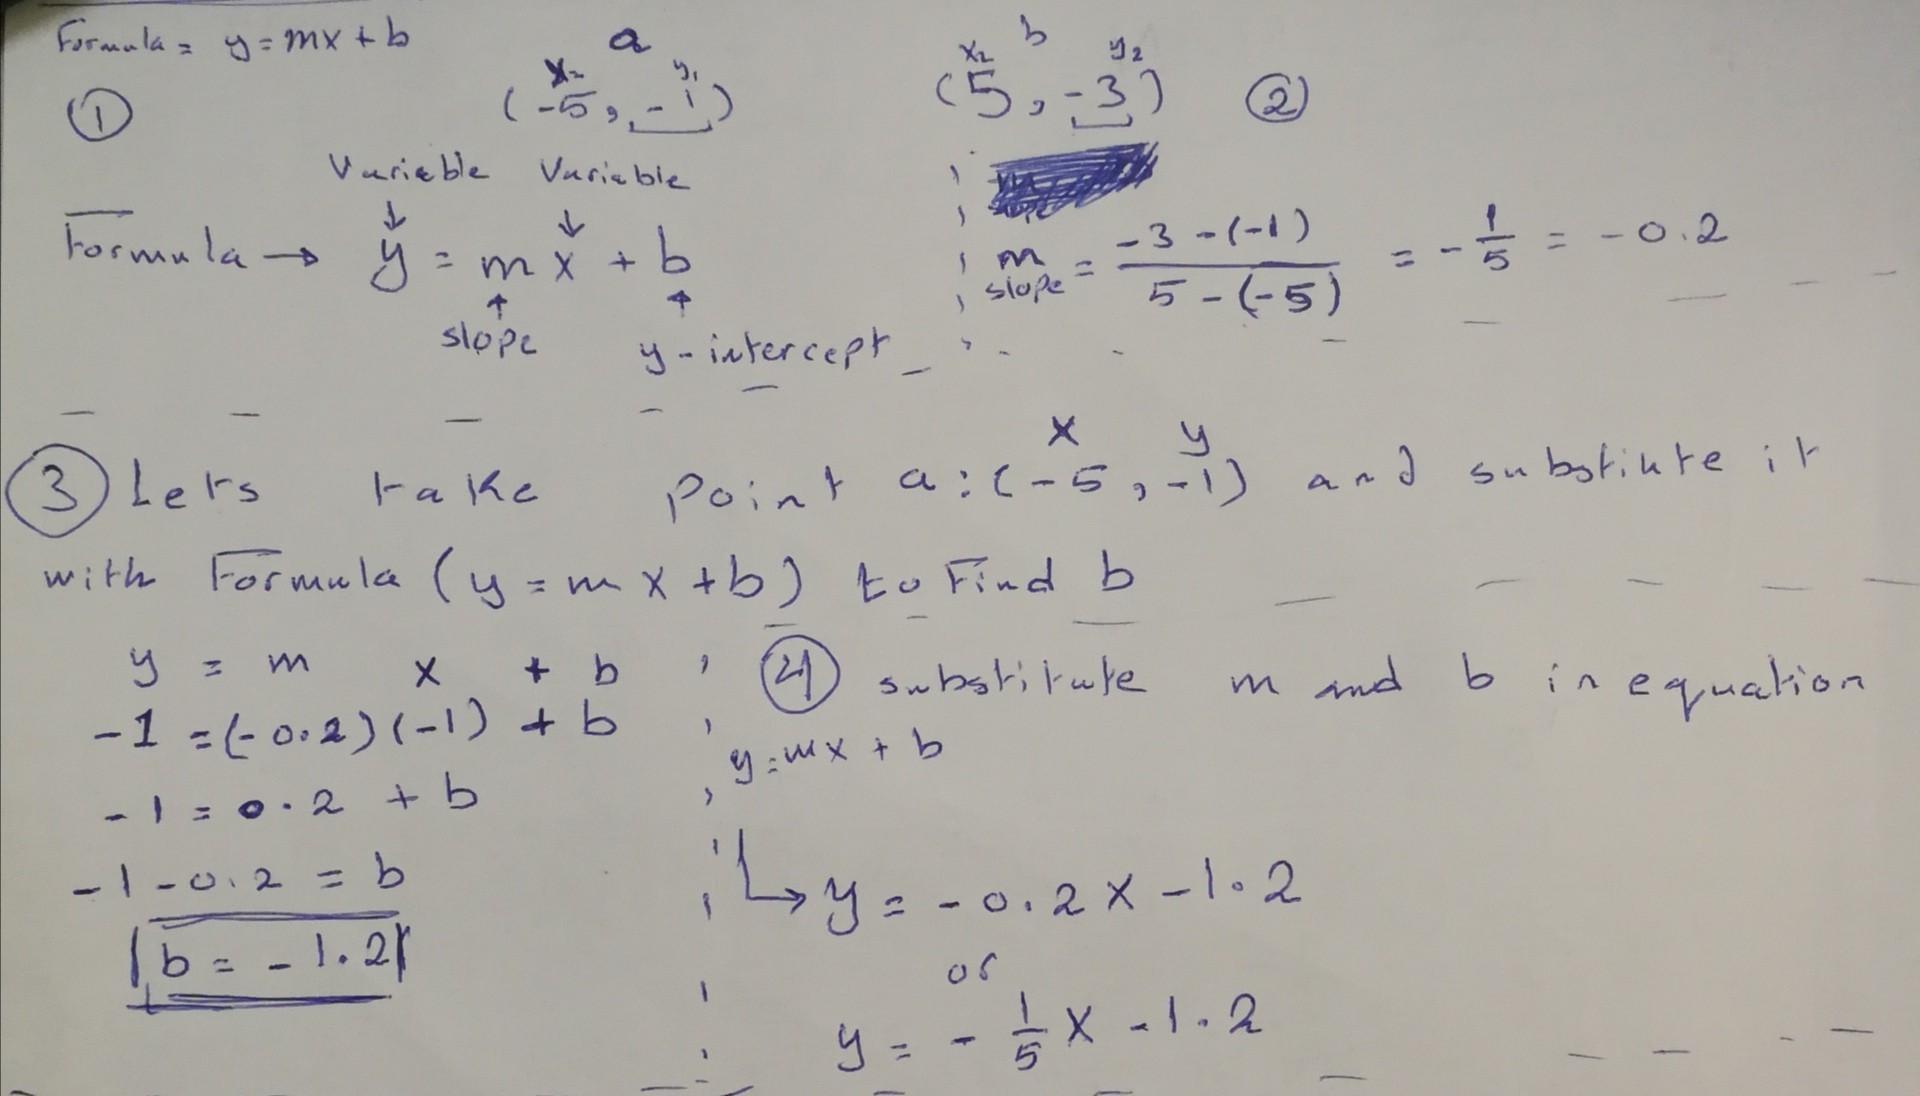 Formula = y = mx + b
a b
x₂ y₁ x₂ y₂
① (-5, -1) (5, -3) ②
Variable Variable
Formula → y = mx + b
slope y-intercept
m slope = -3-(-1) / 5-(-5) = -1/5 = -0.2
x y
③ Lets take point a:(-5,-1) and substiute it
with Formula (y = mx + b) to Find b
y = m x + b
-1 = (-0.2)(-1) + b
-1 = 0.2 + b
-1-0.2 = b
b = -1.2
④ substitute m and b in equation
y=mx + b
↳ y = -0.2x -1.2
or
y = -1/5 x -1.2